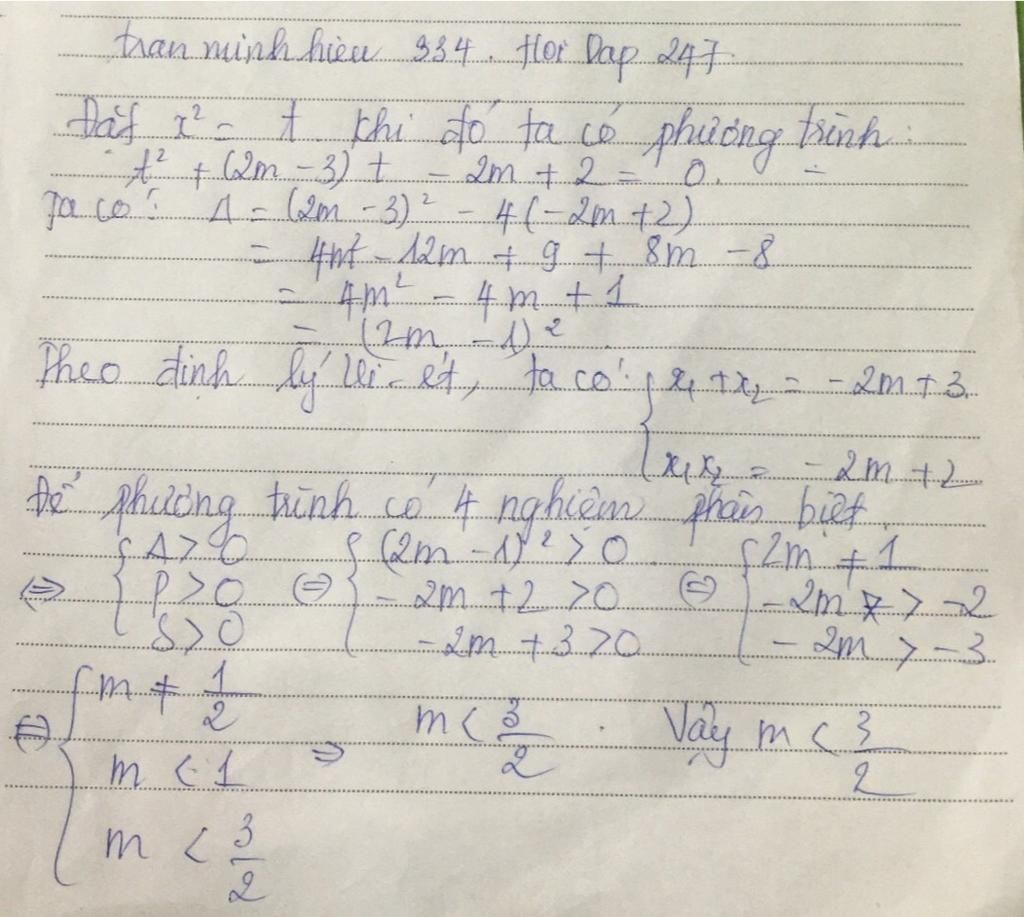 tran minh hieu 334. Hoi Dap 247.
Đặt x² = t. Khi đó ta có phương trình:
t² + (2m - 3) t - 2m + 2 = 0.
Ta có: Δ = (2m - 3)² - 4(-2m + 2)
= 4m² - 12m + 9 + 8m - 8
= 4m² - 4m + 1
= (2m - 1)²
Theo định lý Vi-ét, ta có: { x₁ + x₂ = -2m + 3.
x₁x₂ = -2m + 2
Để phương trình có 4 nghiệm phân biệt.
{ Δ > 0 { (2m - 1)² > 0 { 2m ≠ 1
⇔ P > 0 ⇔ - 2m + 2 > 0 ⇔ -2m > -2
S > 0 -2m + 3 > 0 - 2m > -3
⇔ { m ≠ 1/2
m < 1 ⇒ m < 3/2 . Vậy m < 3/2
m < 3/2